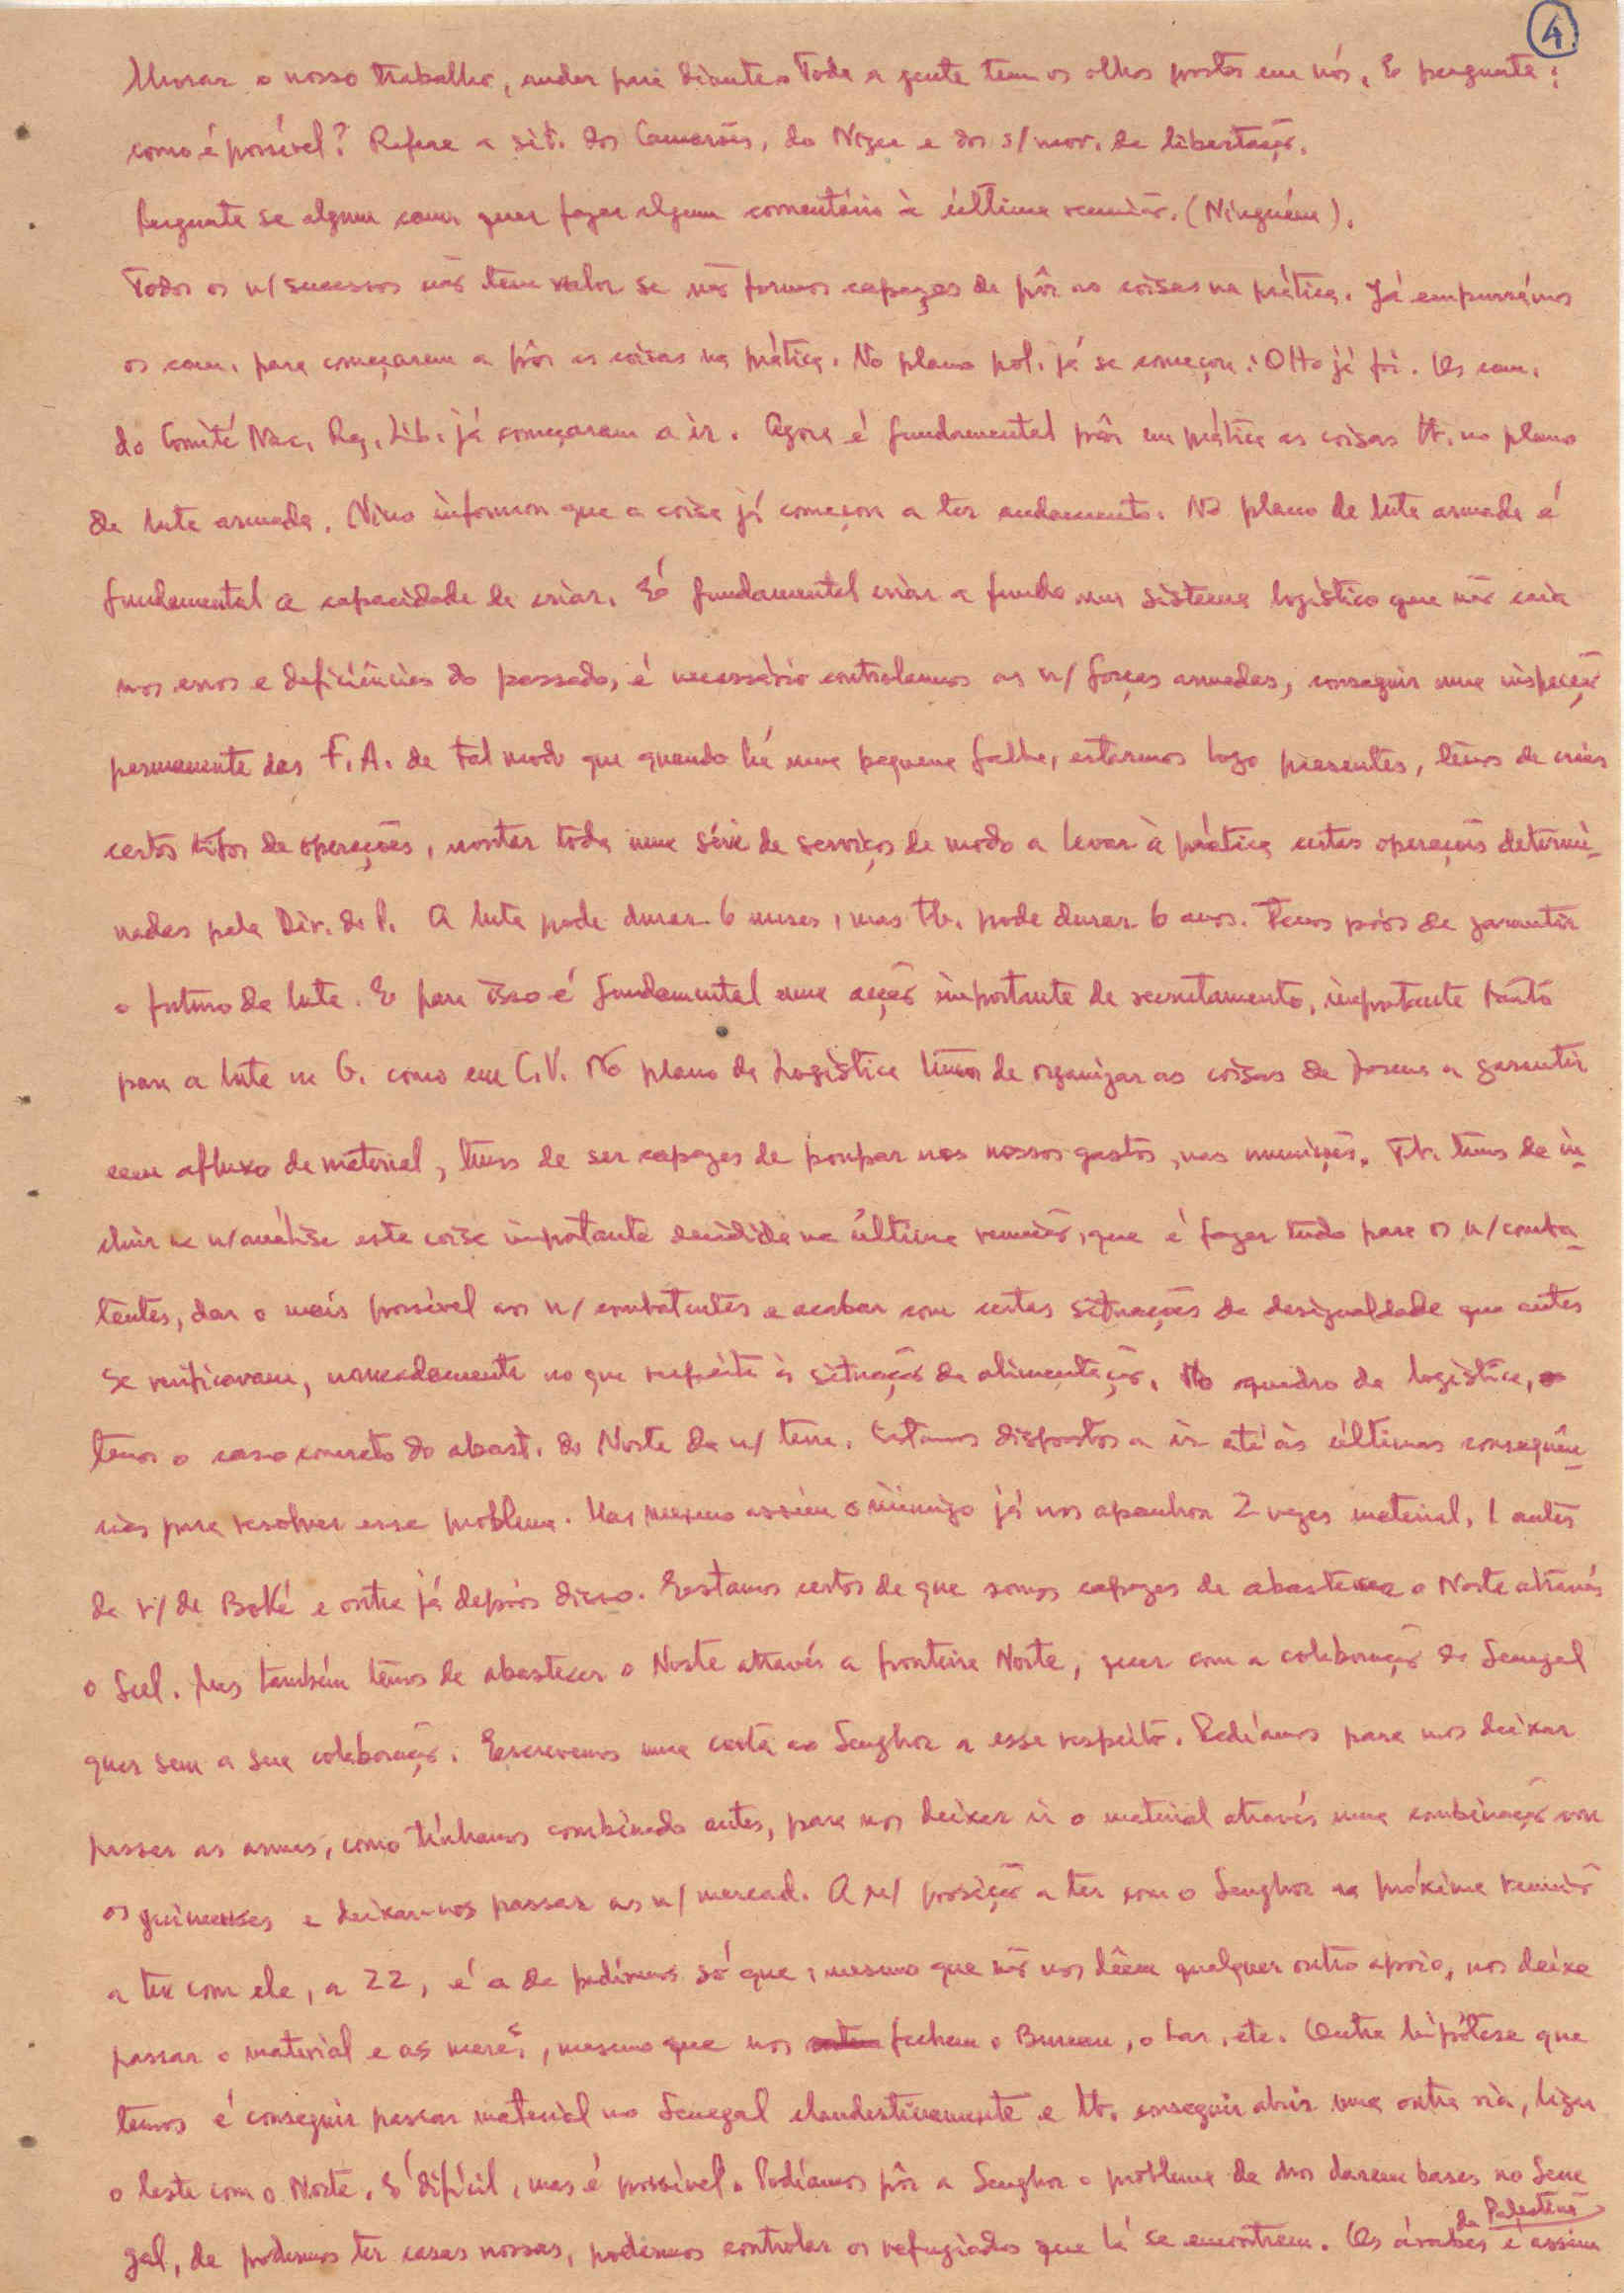 4
lhorar o nosso trabalho, andar para diante. Toda a gente tem os olhos postos em nós. E pergunta:
como é possível? Refere a sit. dos Camarões, do Niger e dos s/mov. de libertação.
Pergunta se algum cam. quer fazer algum comentário à última reunião. (Ninguém).
Todos os n/sucessos não têm valor se não formos capazes de pôr as coisas na prática. Já empurrámos
os cam. para começarem a pôr as coisas na prática. No plano pol. já se começou: Otto já foi. Os cam.
do Comité Nac. Reg. Lib. já começaram a ir. Agora é fundamental pôr em prática as coisas tb. no plano
da luta armada. Nino informou que a coisa já começou a ter andamento. No plano da luta armada é
fundamental a capacidade de criar. É fundamental criar a fundo um sistema logístico que não caia
nos erros e deficiências do passado, é necessário controlarmos as n/ forças armadas, conseguir uma inspecção
permanente das F.A. de tal modo que quando há uma pequena falha, estarmos logo presentes, temos de criar
certos tipos de operações, montar toda uma série de serviços de modo a levar à prática certas operações determi-
nadas pela Dir. do P. A luta pode durar 6 meses, mas tb. pode durar 6 anos. Temos pois de garantir
o futuro da luta. E para isso é fundamental uma acção importante de recrutamento, importante tanto
para a luta na G. como em C.V. No plano da Logística temos de organizar as coisas de forma a garantir
um afluxo de material, temos de ser capazes de poupar nos nossos gastos, nas munições. Tb. temos de in-
cluir na n/análise esta coisa importante decidida na última reunião, que é fazer tudo para os n/comba-
tentes, dar o mais possível aos n/ combatentes e acabar com certas situações de desigualdade que antes
se verificavam, nomeadamente no que respeita à situação da alimentação. No quadro da logística,
temos o caso concreto do abast. do Norte da n/ terra. Estamos dispostos a ir até às últimas consequên-
cias para resolver esse problema. Mas mesmo assim o inimigo já nos apanhou 2 vezes material, 1 antes
da r/ de Boké e outra já depois disso. Estamos certos de que somos capazes de abastecer o Norte através
o Sul. Mas também temos de abastecer o Norte através a fronteira Norte, quer com a colaboração do Senegal
quer sem a sua colaboração. Escrevemos uma carta ao Senghor a esse respeito. Pedíamos para nos deixar
passar as armas, como tínhamos combinado antes, para nos deixar ir o material através uma combinação com
os guineenses e deixar-nos passar as n/ mercad. A n/ posição a ter com o Senghor na próxima reunião
a ter com ele, a 22, é a de pedirmos só que, mesmo que não nos dêem qualquer outro apoio, nos deixe
passar o material e as merc., mesmo que nos fechem o Bureau, o Lar, etc. Outra hipótese que
temos é conseguir passar material no Senegal clandestinamente e tb. conseguir abrir uma outra via, ligar
o leste com o Norte. É difícil, mas é possível. Podíamos pôr a Senghor o problema de nos darem bases no Sene
gal, de podermos ter casas nossas, podermos controlar os refugiados que lá se encontrem. Os árabes da Palestina é assim